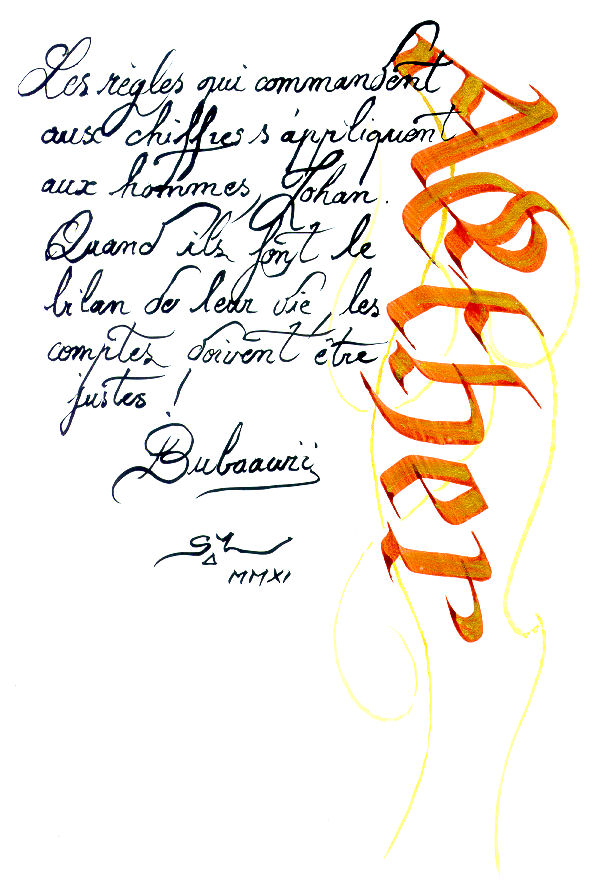 Les règles qui commandent
aux chiffres s'appliquent
aux hommes, Johan.
Quand ils font le
bilan de leur vie, les
comptes doivent être
justes !
MMXI
Aether